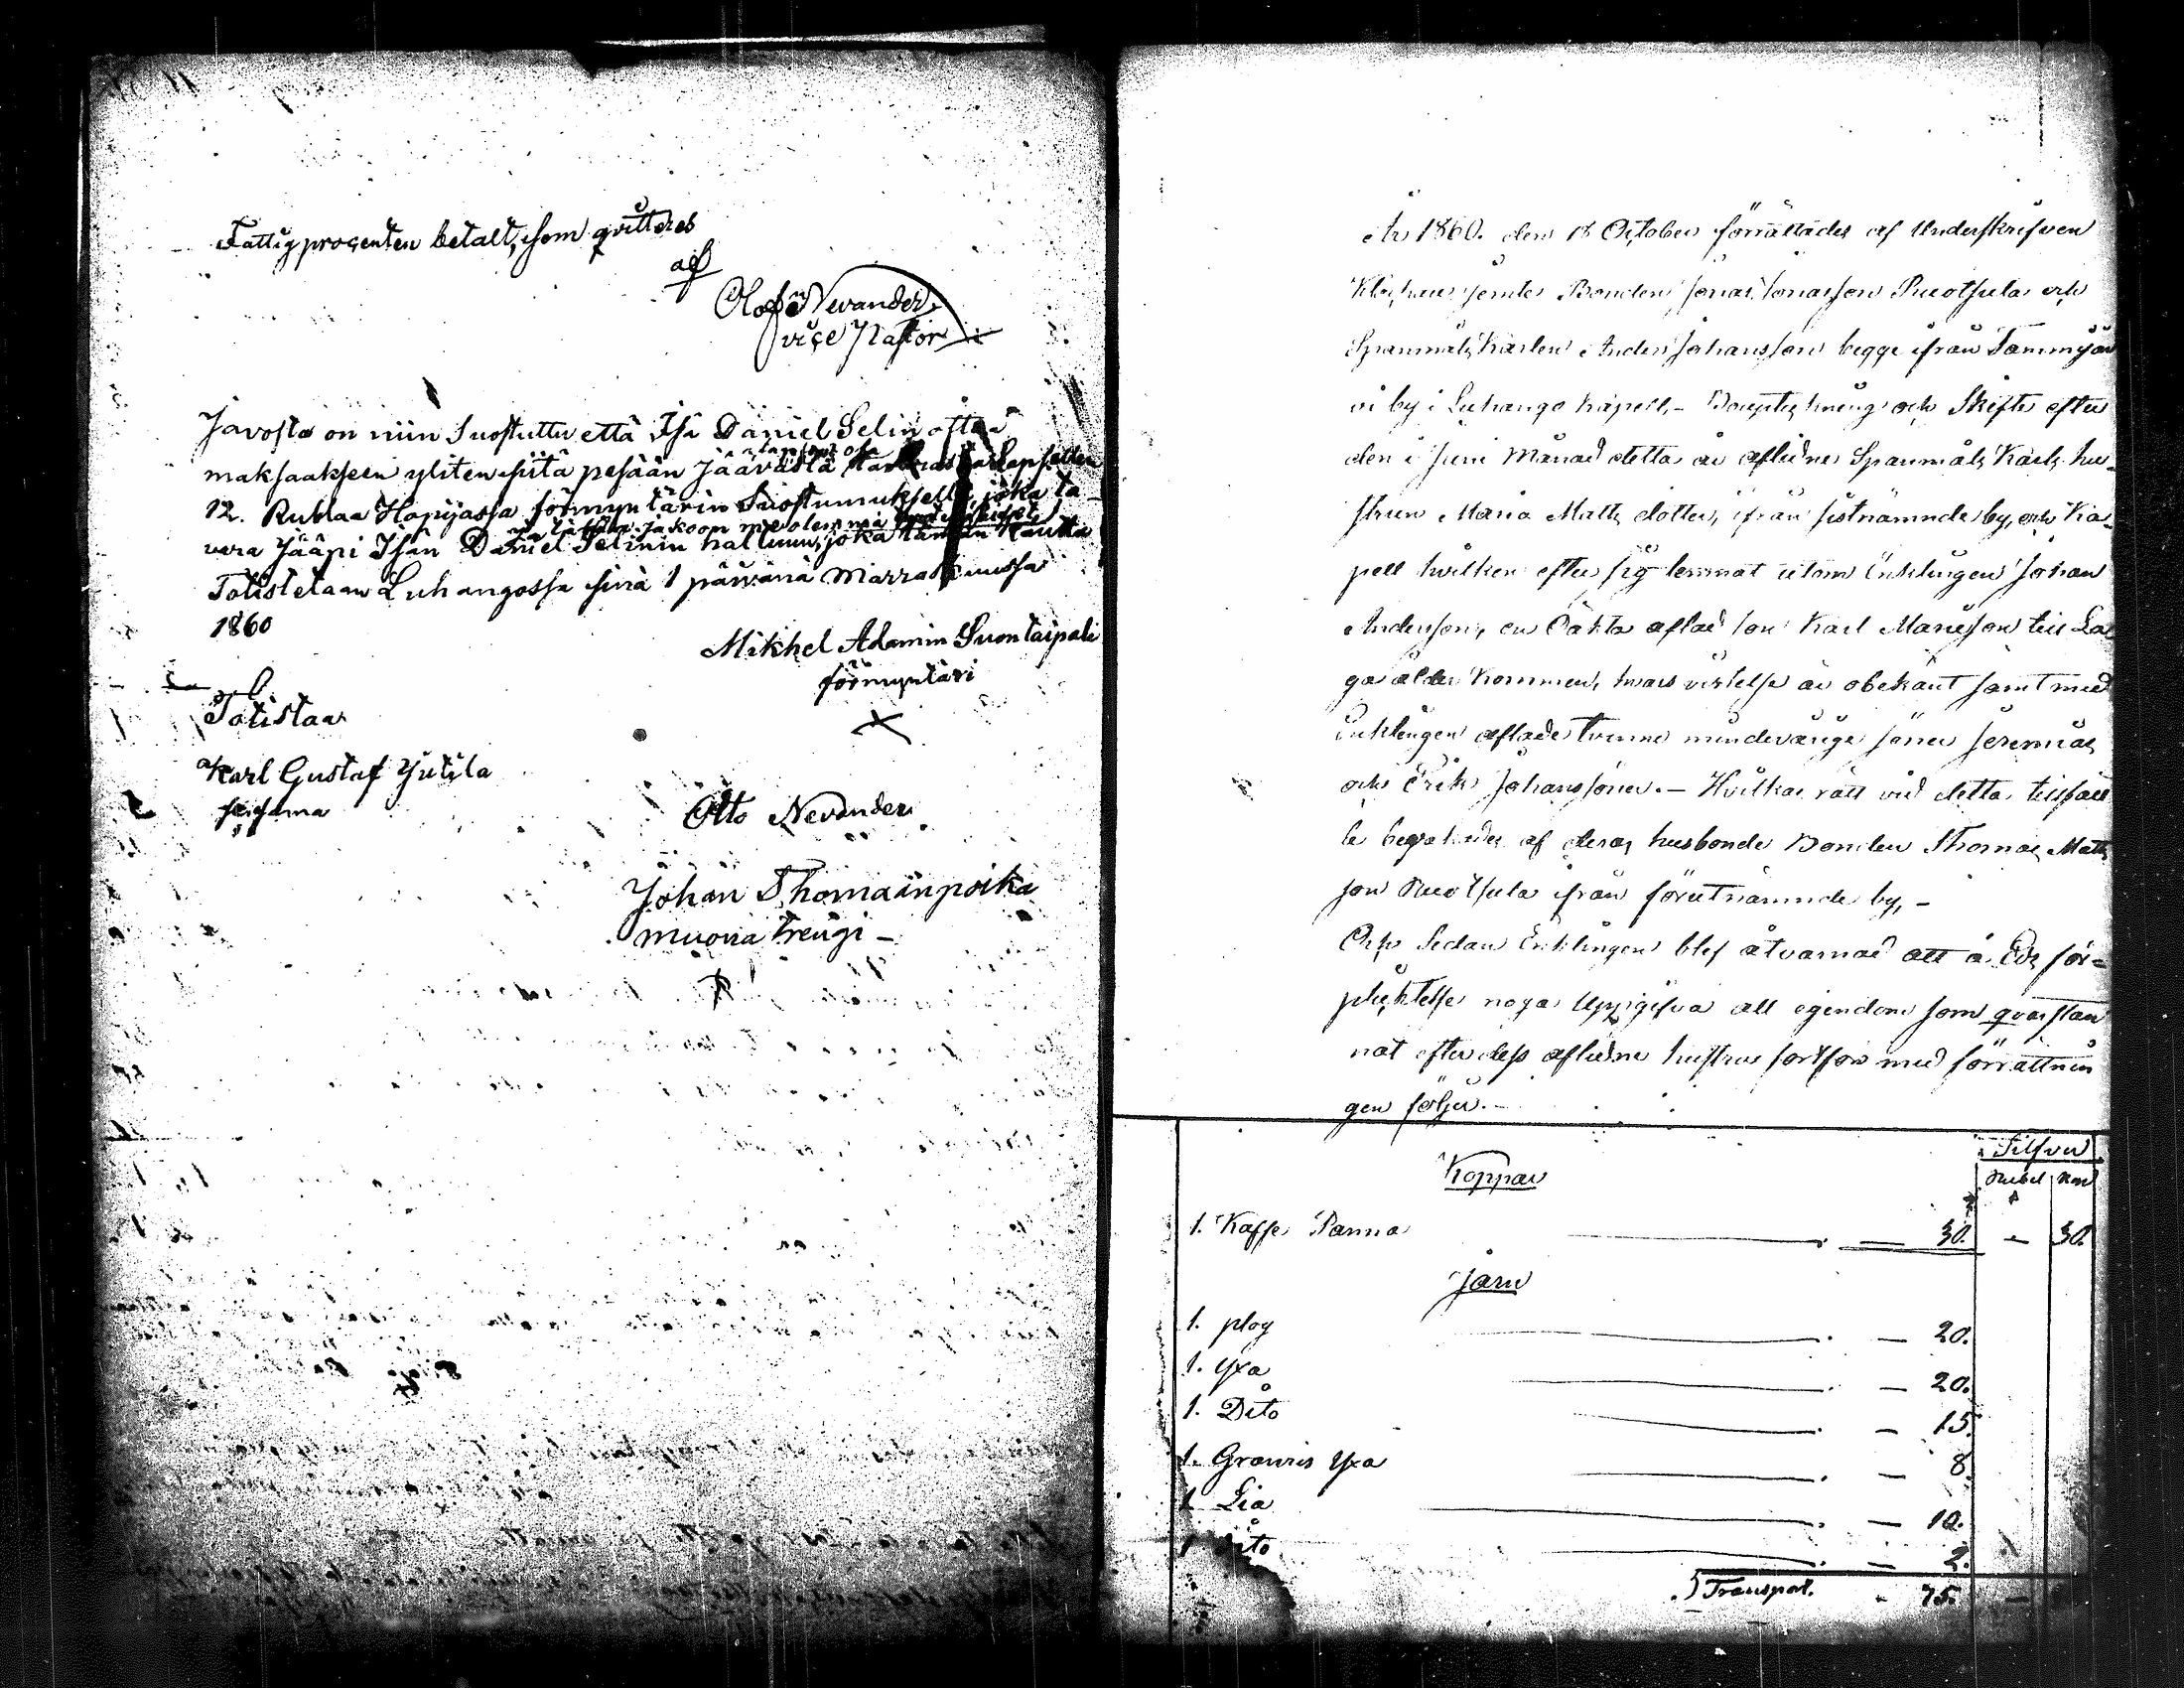 Fattigprocenten betalt, som qvitteras
af
Olof Nevander
vice Pastor
Javosta on niin Suostuttu että Isä Daniel Selin ottaa
maksaakseen yliten siitä pesään jäävästä
12. Rublaa Hopijassa förmyntärin Suostumuksella, joka ta
ja tähän jakoon me olemma
vara jääpi Isän Daniel Selinin halluun, joka tämän kautta
Totistetaan Luhangossa sinä 1 päivänä Marraskuussa
1860
Mikhel Adamin Suontaipali
förmyntäri
Totistaa
Karl Gustaf Jutila
Otto Nevander
Johan Thomaanpoika
muoria Trengi -
År 1860. den 18 October förrättades af Underskrifven
Klockare jemte Bonden Jonas Jonasson Ruotsula och
Spanmåls Karlen Anders Johansson begge ifrån Tammijär
vi by i Luhango Kapell, - Boupteckning och Skifte efter
den i Juni Månad detta år aflidne Spanmåls Karls hu-
strun Maria Matts dotter, ifrån sistnämnde by, och Ka-
pell hvilken efter sig lemnat utom Enklingen Johan
Andersson, en Oäkta aflad son Karl Mariesson till La
ga ålder kommen, hvars vistelse är obekant samt med
Enklingen aflade tvenne minderårige söner Jeremias
och Erik Johanssöner. - Hvilkas rätt vid detta tillfäl
le bevakades af deras husbonde Bonden Thomas Matts
son Ruotsula ifrån förutnämnde by, -
Och Sedan Enklingen blef åtvarnad att å Eds för-
pliktelse noga Uppgifva all egendom som qvarstan
nat efter dess aflidne hustru fortfor med förrättnin
gen följer. -
Silfver
Koppar
Rubel Kop
1. Kaffe Panna — 30. - 30.
Järn
1. plog — 20.
1. Yxa — 20.
1. Dito — 15.
1. Yxa — 8.
1 Lia — 10.
1 Dito — 2.
Transport. - 75. -